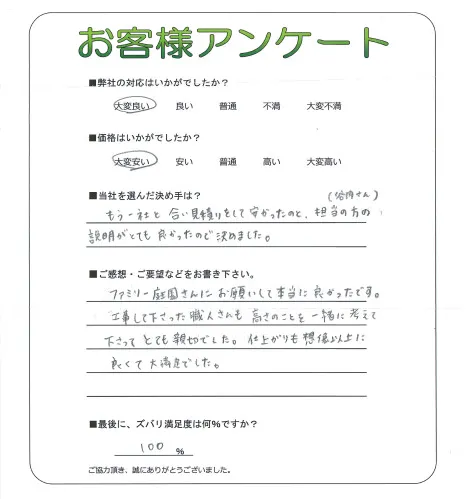 お客様アンケート
■弊社の対応はいかがでしたか？
大変良い 良い 普通 不満 大変不満
■価格はいかがでしたか？
大変安い 安い 普通 高い 大変高い
■当社を選んだ決め手は？
もう一社と合い見積りをして安かったのと、担当の方の
説明がとても良かったので決めました。
■ご感想・ご要望などをお書き下さい。
ファミリー庭園さんにお願いして本当に良かったです。
工事して下さった職人さんも高さのことを一緒に考えて
下さってとても親切でした。仕上がりも想像以上に
良くて大満足でした。
■最後に、ズバリ満足度は何%ですか？
100 %
ご協力頂き、誠にありがとうございました。